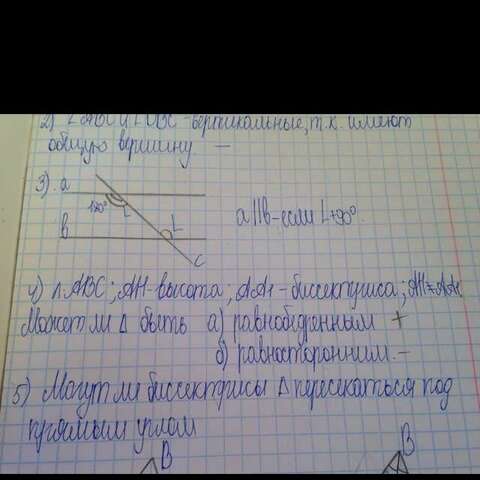 2) ∠ABC и ∠DBC - вертикальные, т.к. имеют
общую вершину. —
3). a
120° L
L
a||b - если L=90°.
b
c
4) △ABC; AH - высота; AA₁ - биссектриса; AH≠AA₁
Может ли △ быть а) равнобедренным +
б) равносторонним. —
5) Могут ли биссектрисы △ пересекаться под
прямым углом
B
B